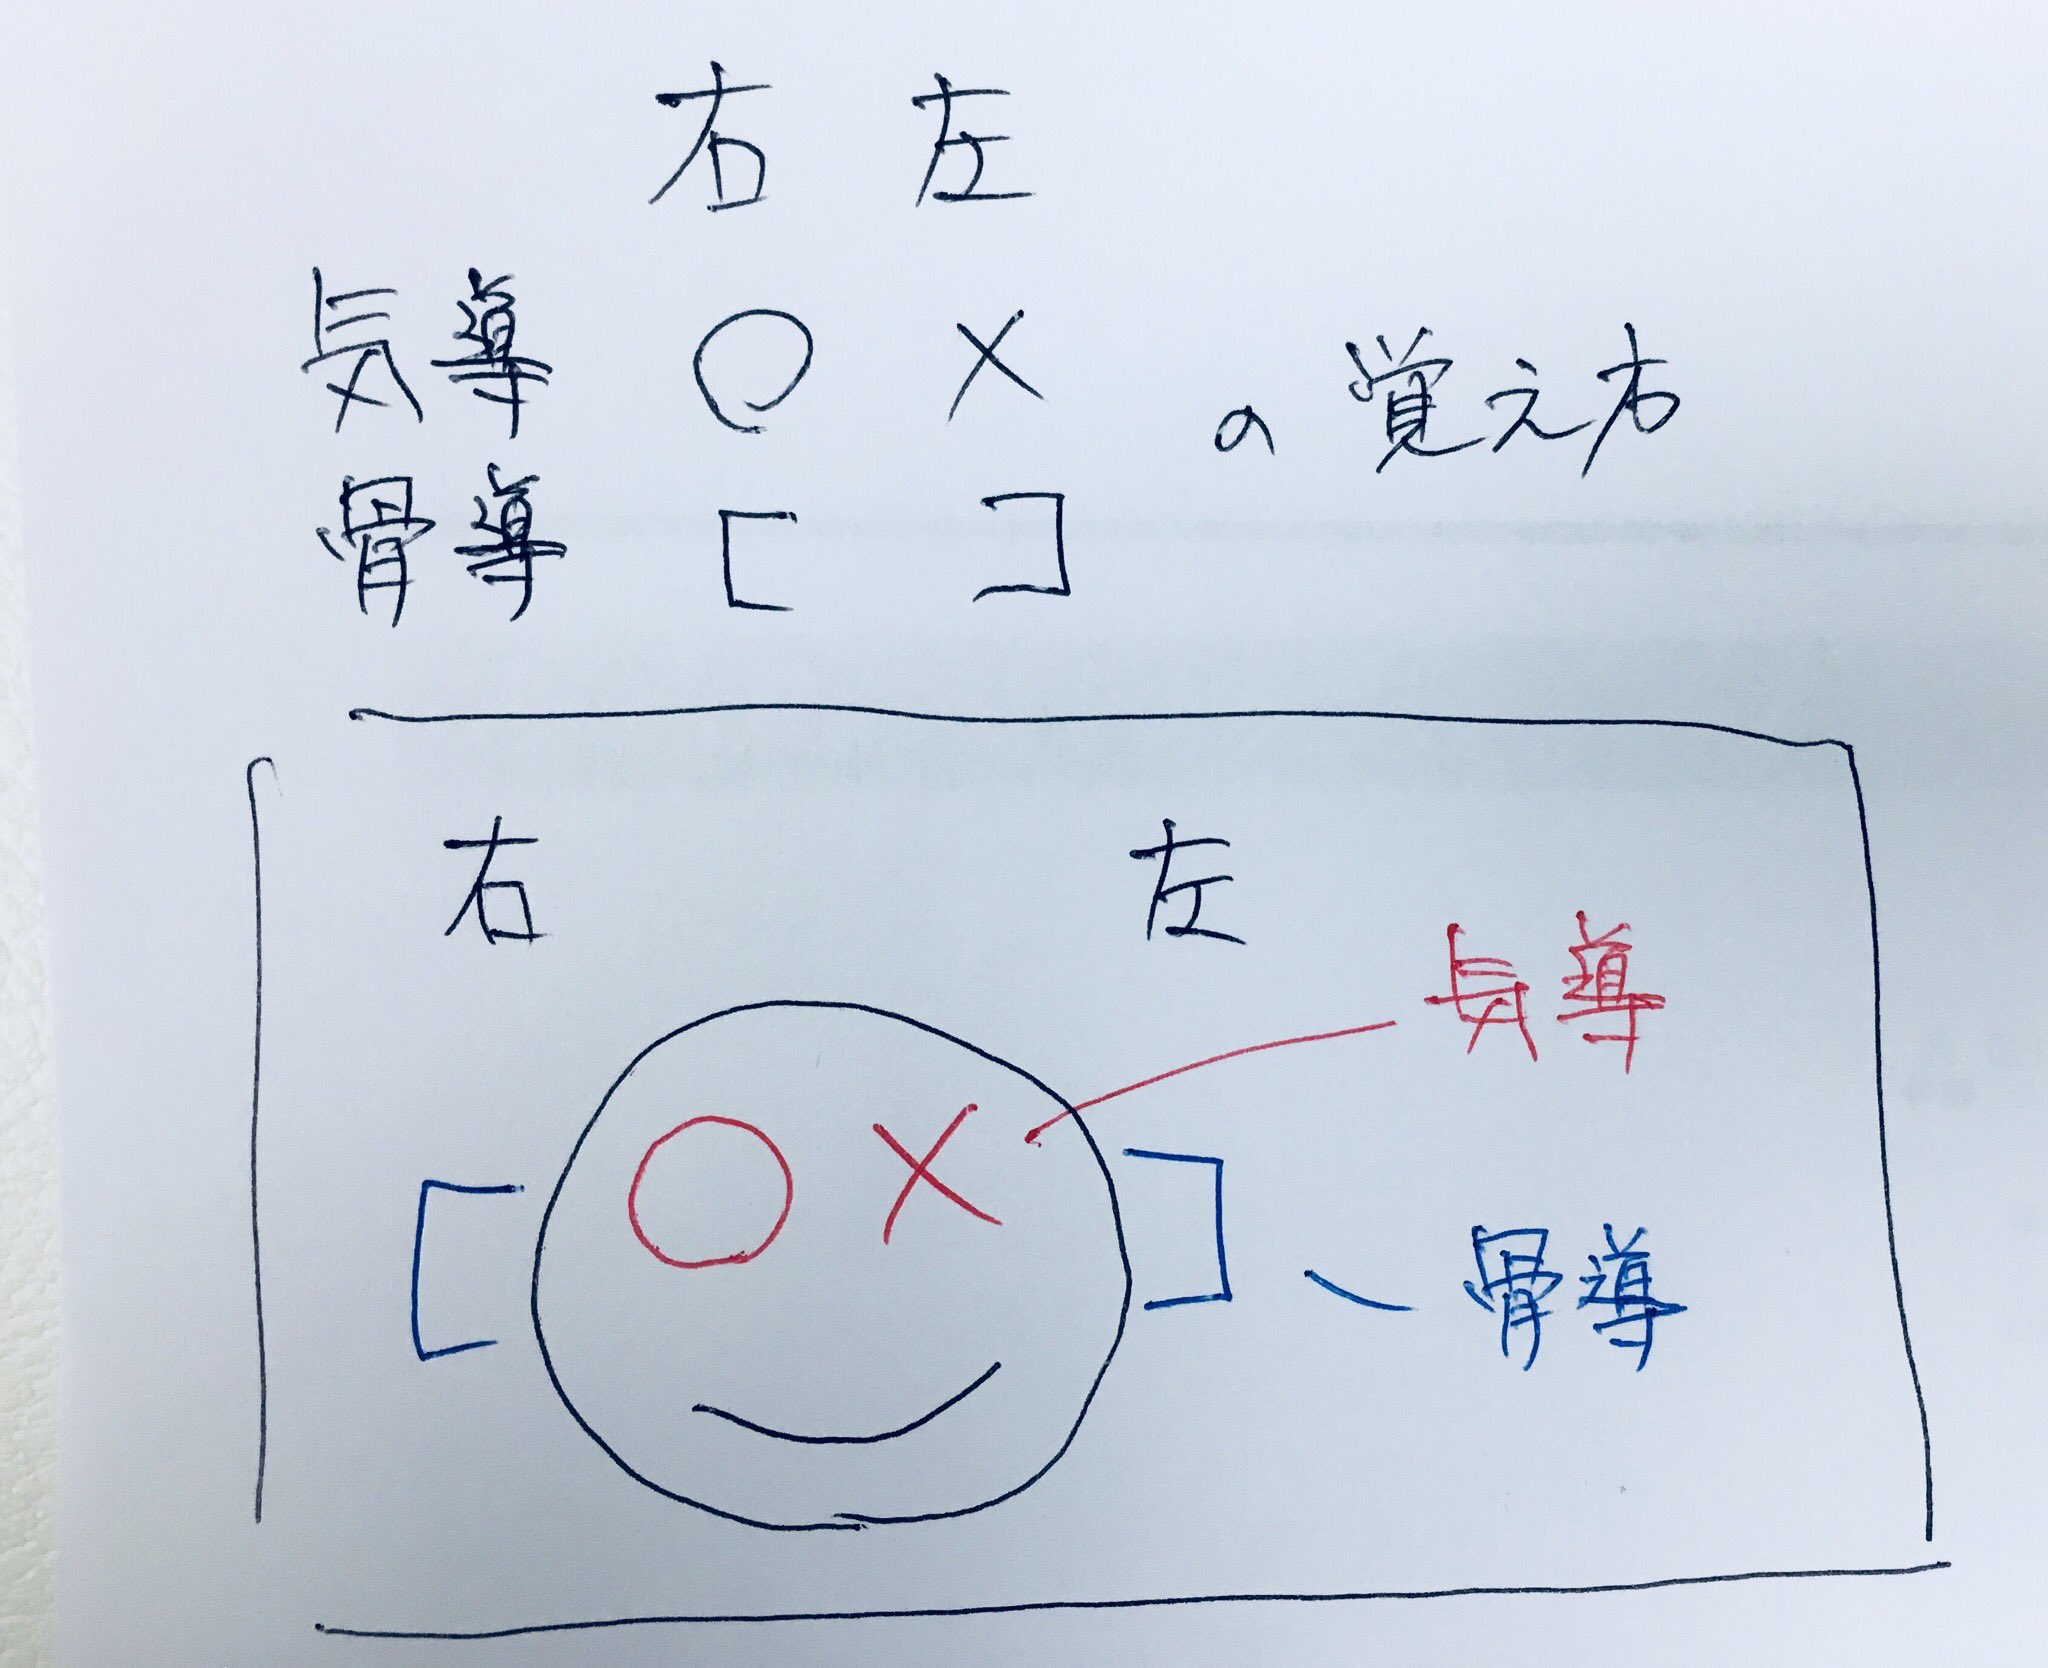 右 左
気導 ○ × の覚え方
骨導 [ ]
右 左
気導
○ ×
[ ] 骨導